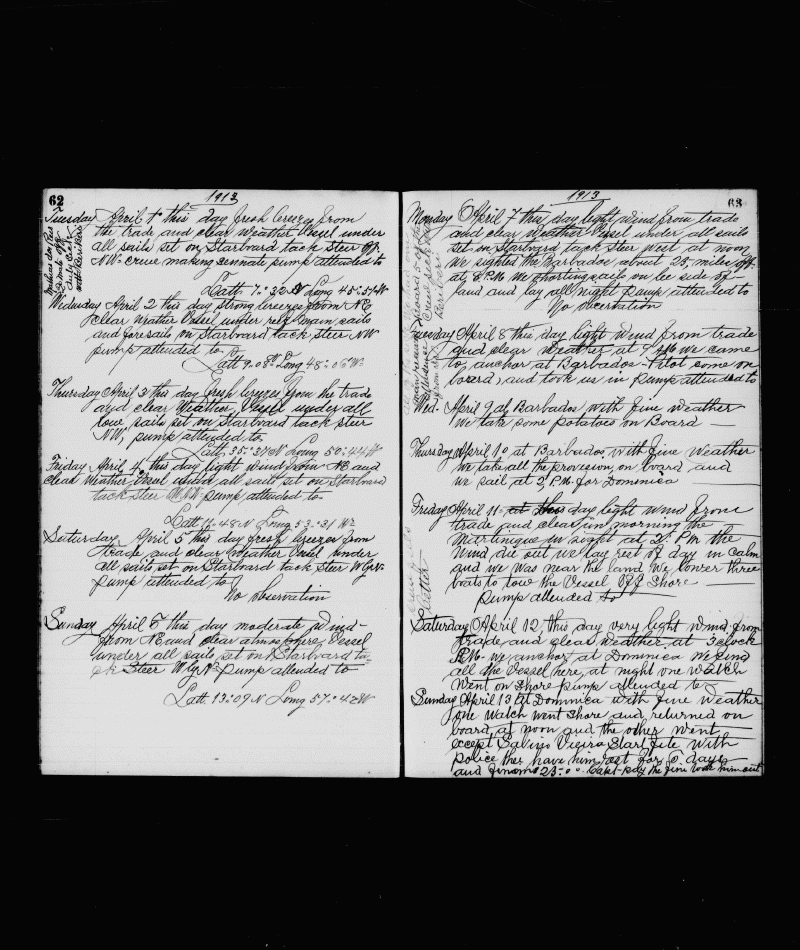 62
1913
Tuesday April 1st this day fresh breeze from
the trade and clear weather Vessel under
all sails set on Starboard tack Steer
NW. crew making sennate pump attended to
Latt 7:32 N Long 45:51 W
Wednesday April 2 this day strong breezes from NE
clear weather Vessel under reef main sails
and foresails on Starboard tack Steer NW
pump attended to.
Latt 9:08 N Long 48:06 W
Thursday April 3 this day fresh breeze from the trade
and clear Weather, Vessel under all
low sails set on Starboard tack steer
NW, pump attended to.
Long 50:44 W
Friday April 4, this day light wind from NE and
clear weather Vessel under all sail set on Starboard
tack Steer pump attended to
Latt 48 N Long 53:31 W
Saturday April 5 this day fresh breeze from
trade and clear weather Vessel under
all sails set on Starboard tack Steer W by N
pump attended to
No Observation
Sunday April 6 this day moderate wind
from NE and clear atmosphere, Vessel
under all sails set on Starboard ta-
ck Steer W by N pump attended to
Latt 13:09 N Long 57:42 W
63
1913
Monday April 7 this day light wind from trade
and clear weather Vessel under all sails
set on Starboard tack Steer west at noon
We sighted the Barbados about 25 miles off
at 8 P.M. We shorting sails on lee side of
land and lay all night pump attended to
No observation
Tuesday April 8 this day light wind from trade
and clear Weather at 9 We came
to anchor at Barbados - Pilot come on
board, and took us in pump attended to
Wed. April 9 at Barbados with fine weather
We take some potatoes on Board
Thursday April 10 at Barbados, with fine Weather
We take all the provision, on board and
we sail, at 2 P.M. for Domenica
Friday April 11 at this day light wind from
trade and clear, in morning the
Martinique in sight at 2. P.M the
Wind die out we lay rest of day in calm
and we was near the land We lower three
boats to tow the Vessel off Shore
pump attended to
Saturday April 12, this day very light wind from
trade and clear weather at 3 clock
P.M. we anchor, at Dominica We send
all the Vessel here, at night one watch
Went on shore pump attended to
Sunday April 13 at Dominica with fine Weather
one watch went shore and returned on
board at noon and the other went
except Salvino Vieira Start fite with
police they have him rest for 5 days
and 23:00. Capt pay the fine took him out